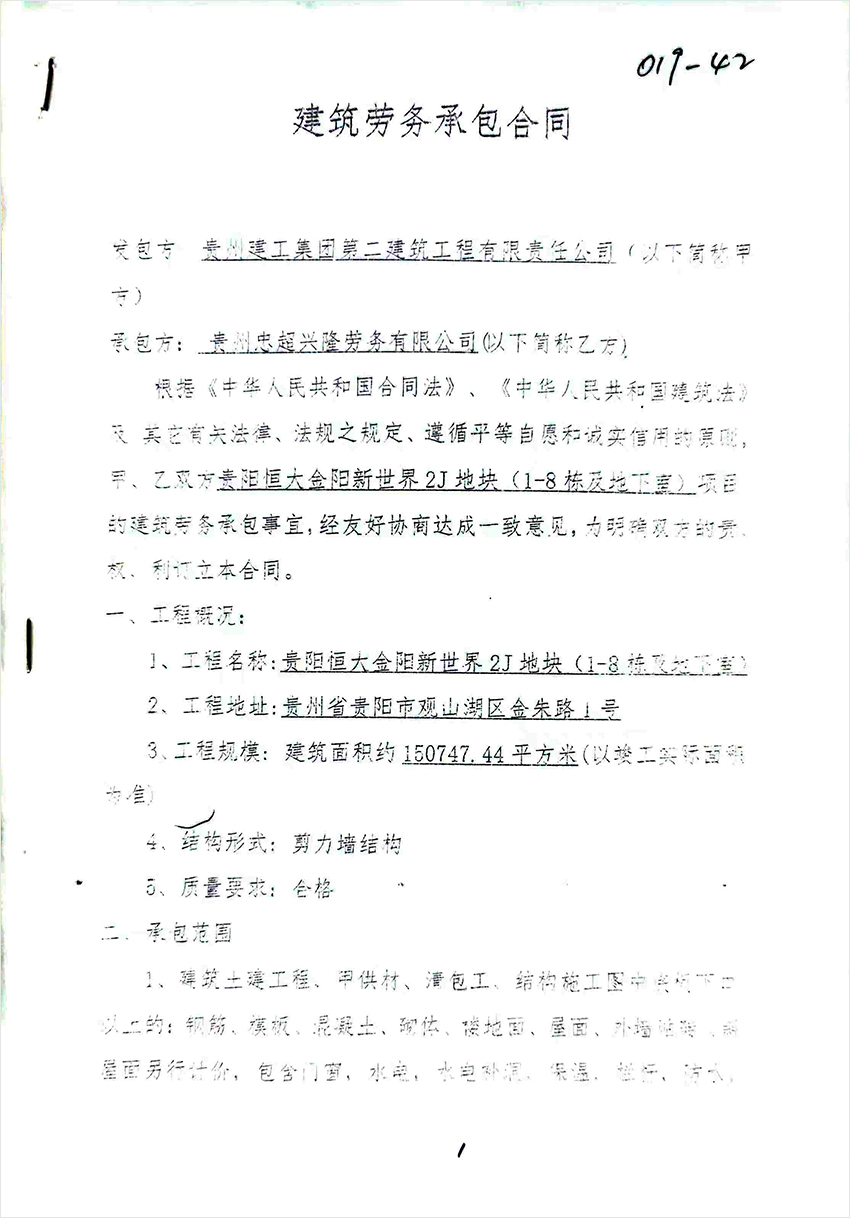 019-42
建筑劳务承包合同
发包方 贵州建工集团第二建筑工程有限责任公司(以下简称甲
方)
承包方: 贵州忠超兴隆劳务有限公司(以下简称乙方)
根据《中华人民共和国合同法》、《中华人民共和国建筑法》
及 其它有关法律、法规之规定、遵循平等自愿和诚实信用的原则,
甲、乙双方贵阳恒大金阳新世界2J地块(1-8栋及地下室)项目
的建筑劳务承包事宜,经友好协商达成一致意见,为明确双方的责、
权、利订立本合同。
一、工程概况:
1、工程名称:贵阳恒大金阳新世界2J地块(1-8栋及地下室)
2、工程地址:贵州省贵阳市观山湖区金朱路1号
3、工程规模: 建筑面积约150747.44平方米(以竣工实际面积
为准)
4、结构形式: 剪力墙结构
5、质量要求: 合格
二、承包范围
1、建筑土建工程、甲供材、清包工、结构施工图中
以上的: 钢筋、模板、混凝土、砌体、楼地面、屋面、外墙
屋面另行计价, 包含门窗, 水电, 水电补洞、保温、栏杆、防水,
1